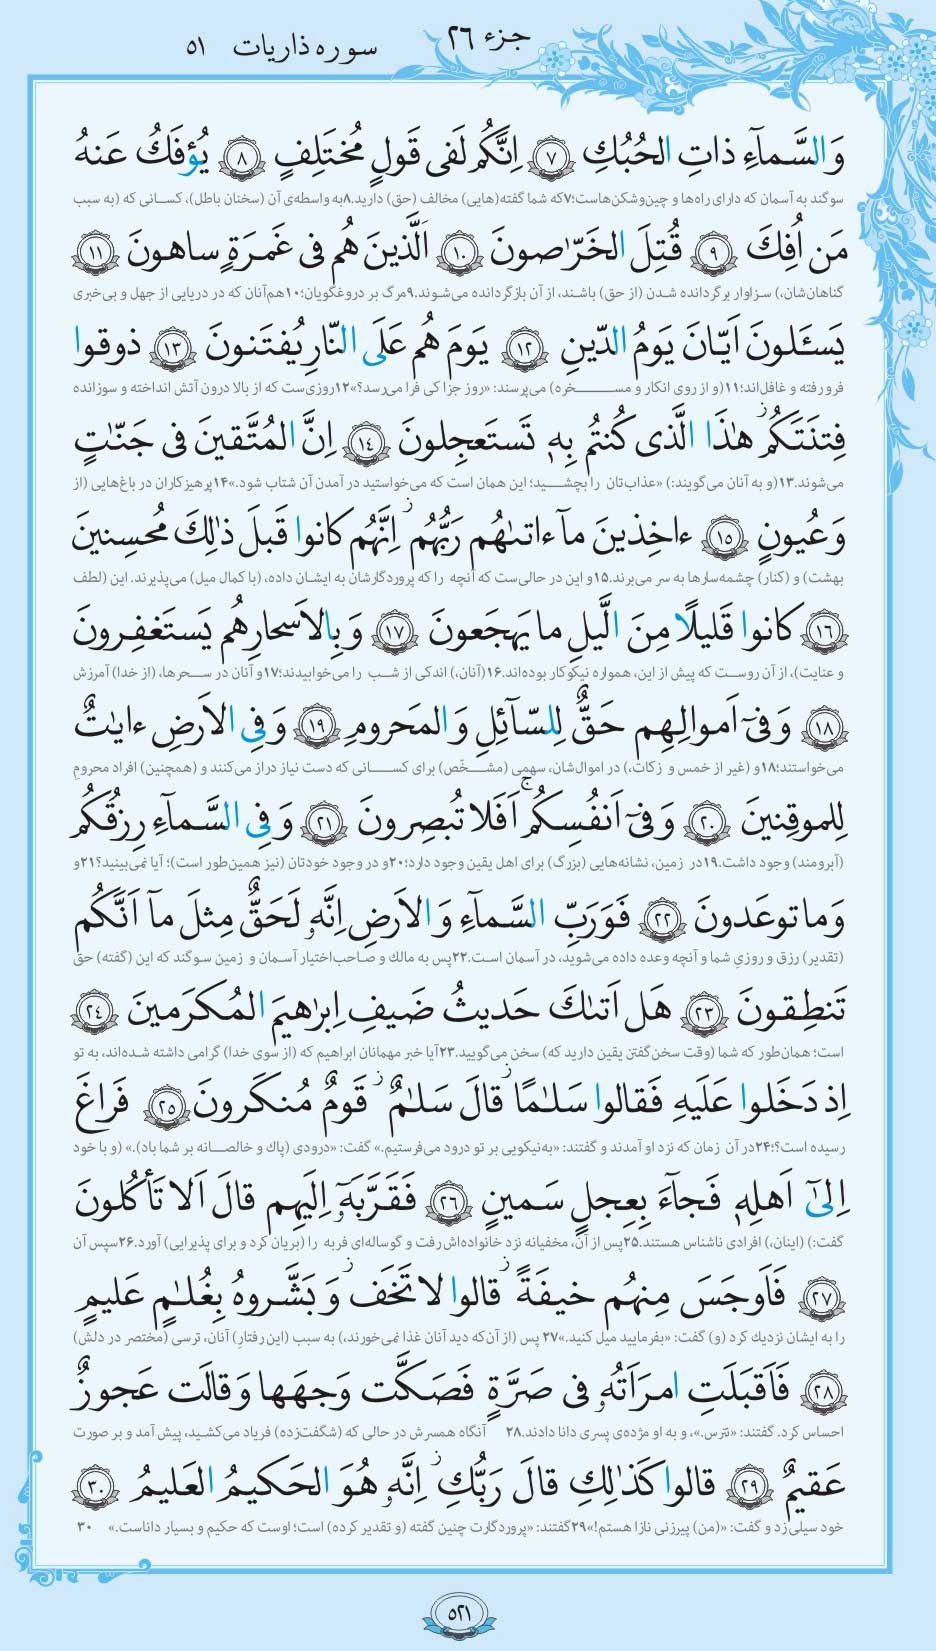 جزء ۲۶
سوره ذاریات ۵۱
وَالسَّمآءِ ذاتِ الحُبُكِ ﴿٧﴾ اِنَّكُم لَفى قَولٍ مُختَلِفٍ ﴿٨﴾ يُؤفَكُ عَنهُ
سوگند به آسمان که دارای راه‌ها و چین‌وشکن‌هاست؛۷که شما گفته(هایی) مخالف (حق) دارید.۸به واسطه‌ی آن (سخنان باطل)، کسانی که (به سبب
مَن اُفِكَ ﴿٩﴾ قُتِلَ الخَرّٰصونَ ﴿١٠﴾ اَلَّذينَ هُم فى غَمرَةٍ ساهونَ ﴿١١﴾
گناهان‌شان،) سزاوار برگردانده شدن (از حق) باشند، از آن بازگردانده می‌شوند.۹مرگ بر دروغگویان؛۱۰هم‌آنان که در دریایی از جهل و بی‌خبری
يَسـَٔلونَ اَيّانَ يَومُ الدّينِ ﴿١٢﴾ يَومَ هُم عَلَى النّارِ يُفتَنونَ ﴿١٣﴾ ذوقوا
فرو رفته و غافل‌اند؛۱۱(و از روی انکار و مسخره) می‌پرسند: «روز جزا کی فرا می‌رسد؟»۱۲روزی‌ست که از بالا درون آتش انداخته و سوزانده
فِتنَتَكُم ۖ هٰذَا الَّذى كُنتُم بِهٖ تَستَعجِلونَ ﴿١٤﴾ اِنَّ المُتَّقينَ فى جَنّٰتٍ
می‌شوند.۱۳(و به آنان می‌گویند:) «عذاب‌تان را بچشید؛ این همان است که می‌خواستید در آمدن آن شتاب شود.»۱۴پرهیزکاران در باغ‌هایی (از
وَعُيونٍ ﴿١٥﴾ ءاخِذينَ مآ ءاتىٰهُم رَبُّهُم ۚ اِنَّهُم كانوا قَبلَ ذٰلِكَ مُحسِنينَ
بهشت) و (کنار) چشمه‌سارها به سر می‌برند.۱۵و این در حالی‌ست که آنچه را که پروردگارشان به ایشان داده، (با کمال میل) می‌پذیرند. این (لطف
﴿١٦﴾ كانوا قَليلًا مِنَ الَّيلِ ما يَهجَعونَ ﴿١٧﴾ وَبِالاَسحارِهُم يَستَغفِرونَ
و عنایت)، از آن روست که پیش از این، همواره نیکوکار بوده‌اند.۱۶(آنان،) اندکی از شب را می‌خوابیدند؛۱۷و آنان در سحرها، (از خدا) آمرزش
﴿١٨﴾ وَفىٓ اَموالِهِم حَقٌّ لِلسّآئِلِ وَالمَحرومِ ﴿١٩﴾ وَفِى الاَرضِ ءايٰتٌ
می‌خواستند؛۱۸و (غیر از خمس و زکات،) در اموال‌شان، سهمی (مشخّص) برای کسانی که دست نیاز دراز می‌کنند و (همچنین) افراد محروم
لِلموقِنينَ ﴿٢٠﴾ وَفىٓ اَنفُسِكُم ۚ اَفَلا تُبصِرونَ ﴿٢١﴾ وَفِى السَّمآءِ رِزقُكُم
(آبرومند) وجود داشت.۱۹در زمین، نشانه‌هایی (بزرگ) برای اهل یقین وجود دارد؛۲۰و در وجود خودتان (نیز همین‌طور است)؛ آیا نمی‌بینید؟۲۱و
وَما توعَدونَ ﴿٢٢﴾ فَوَرَبِّ السَّمآءِ وَالاَرضِ اِنَّهٗ لَحَقٌّ مِثلَ مآ اَنَّكُم
(تقدیر) رزق و روزیِ شما و آنچه وعده داده می‌شوید، در آسمان است.۲۲پس به مالک و صاحب‌اختیار آسمان و زمین سوگند که این (گفته) حق
تَنطِقونَ ﴿٢٣﴾ هَل اَتىٰكَ حَديثُ ضَيفِ اِبرٰهيمَ المُكرَمينَ ﴿٢٤﴾
است؛ همان‌طور که شما (وقت سخن‌گفتن یقین دارید که) سخن می‌گویید.۲۳آیا خبر مهمانان ابراهیم که (از سوی خدا) گرامی داشته شده‌اند، به تو
اِذ دَخَلوا عَلَيهِ فَقالوا سَلٰمًا ۖ قالَ سَلٰمٌ ۖ قَومٌ مُنكَرونَ ﴿٢٥﴾ فَراغَ
رسیده است؟؛۲۴در آن زمان که نزد او آمدند و گفتند: «به‌نیکویی بر تو درود می‌فرستیم.» گفت: «درودی (پاک و خالصانه بر شما باد).» (و با خود
اِلىٰٓ اَهلِهٖ فَجآءَ بِعِجلٍ سَمينٍ ﴿٢٦﴾ فَقَرَّبَهٗٓ اِلَيهِم قالَ اَلا تَأكُلونَ
گفت:) (اینان،) افرادی ناشناس هستند.۲۵پس از آن، مخفیانه نزد خانواده‌اش رفت و گوساله‌ای فربه را (بریان کرد و برای پذیرایی) آورد.۲۶سپس آن
﴿٢٧﴾ فَاَوجَسَ مِنهُم خيفَةً ۖ قالوا لا تَخَف ۖ وَبَشَّروهُ بِغُلٰمٍ عَليمٍ
را به ایشان نزدیک کرد (و) گفت: «بفرمایید میل کنید.»۲۷ پس (از آن‌که دید آنان غذا نمی‌خورند،) به سبب (این رفتارِ) آنان، ترسی (مختصر در دلش)
﴿٢٨﴾ فَاَقبَلَتِ امرَاَتُهٗ فى صَرَّةٍ فَصَكَّت وَجهَها وَقالَت عَجوزٌ
احساس کرد. گفتند: «نترس.»، و به او مژده‌ی پسری دانا دادند.۲۸ آنگاه همسرش در حالی که (شگفت‌زده) فریاد می‌کشید، پیش آمد و بر صورت
عَقيمٌ ﴿٢٩﴾ قالوا كَذٰلِكِ قالَ رَبُّكِ ۖ اِنَّهٗ هُوَ الحَكيمُ العَليمُ ﴿٣٠﴾
خود سیلی زد و گفت: «(من) پیرزنی نازا هستم!»۲۹گفتند: «پروردگارت چنین گفته (و تقدیر کرده) است؛ اوست که حکیم و بسیار داناست.» ۳۰
۵۲۱